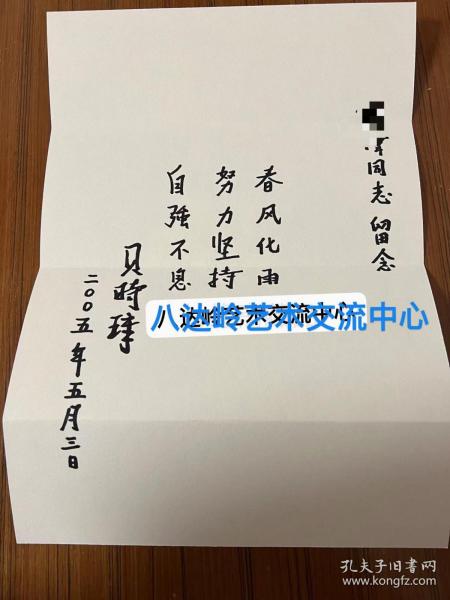 同志 留念
春风化雨
努力坚持
自强不息
贝时璋
二〇〇五年五月三日
八达岭艺术交流中心
孔夫子旧书网
www.kongfz.com